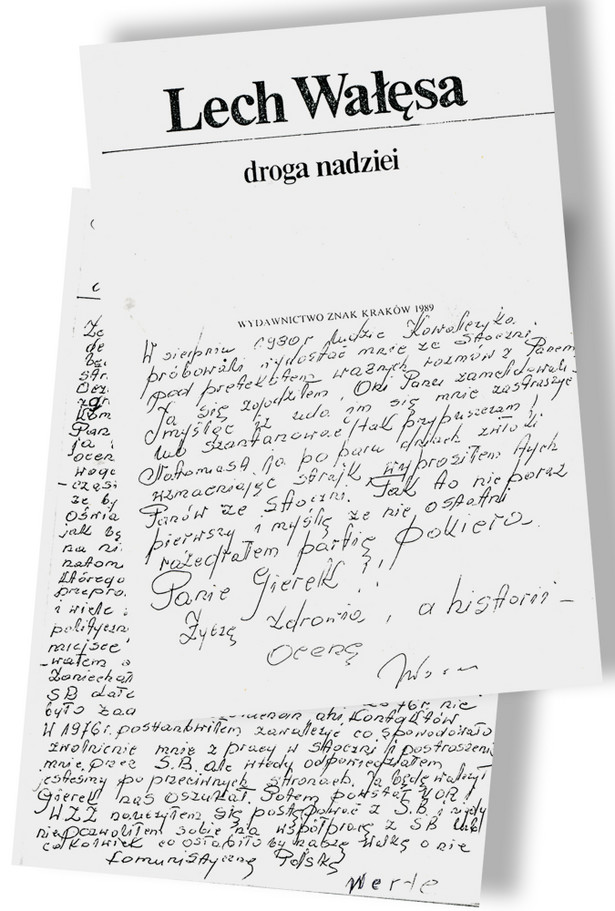 Lech Wałęsa
droga nadziei
WYDAWNICTWO ZNAK KRAKÓW 1989
W sierpniu 1980 r ludzie Kowalczyka
próbowali wydostać mnie ze Stoczni
pod pretekstem ważnych rozmów z Panem
Ja się zgodziłem. Oni Panu zameldowali
myśląc iż uda im się mnie zastraszyć
lub szantażować /tak przypuszczam/
Natomiast ja po paru dniach zwłoki
wzmacniając strajk wyprosiłem tych
Panów ze Stoczni. Tak to nie poraz
pierwszy i myślę że nie ostatni
rozegrałem partię pokiera
Panie Gierek!!
Życzę zdrowia, a historii –
Ocenę
Że
de
str.
Bez.
zgr.
Pan
ja
ocen
wogc
– czasi
że by
Oświa
jak by
na ni
natom
którego
przepro.
i wiele
polityczn
miejsce
– wałem
Zaniechał
SB dałc
było zaa
ani kontaktów
W 1976 r. postanowiłem zawalczyć co spowodowało
zwolnienie mnie z pracy w Stoczni i postraszeni
mnie przez S.B. ale wtedy odpowiedziałem
jesteśmy po przeciwnych stronach. Ja będę walczył
Gierek nas oszukał. Potem powstał KOR i
WZZ nauczyłem się postępować z S.B i nigdy
niepozwoliłem sobie na współpracę z SB lub
cokolwiek co osłabiło by naszą walkę o nie
komunistyczną Polskę
Werte